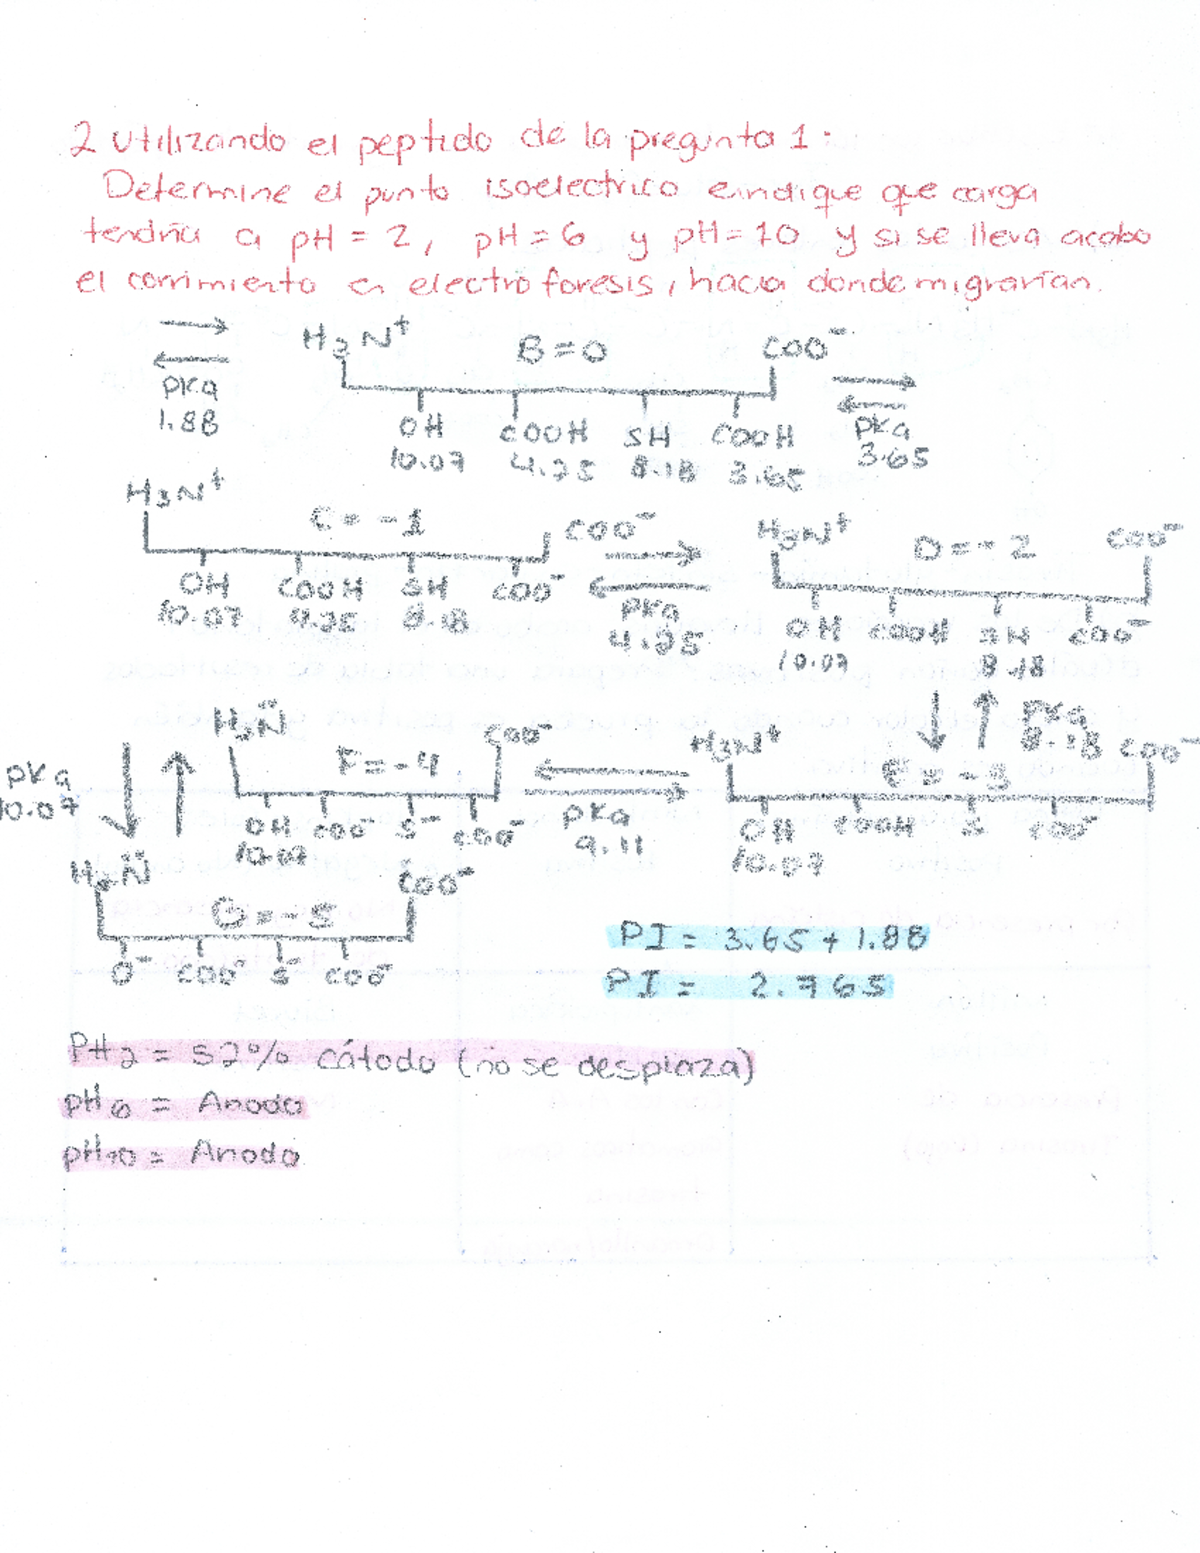 2 utilizando el peptido de la pregunta 1:
Determine el punto isoelectrico e indique que carga
tendria a pH = 2, pH = 6 y pH = 10 y si se lleva acabo
el corrimiento en electroforesis, hacia donde migrarian.
H3N+ B = 0 COO-
pKa
1.88
OH COOH SH COOH
10.07 4.25 8.18 3.65
pKa
3.65
H3N+ C = -1 COO-
OH COOH SH COO-
10.07 4.25 8.18
pKa
4.25
H3N+ D = -2 COO-
OH COOH SH COO-
10.07 8.18
pKa
8.18
H3N+ E = -3 COO-
OH COOH S COO-
10.07
pKa
9.11
H3N̈ F = -4 COO-
OH COO- S- COO-
10.07
pKa
10.07
COO-
O- COO- S- COO-
PI = 3.65 + 1.88
PI = 2.765
PH2 = 52% cátodo (no se desplaza)
pH6 = Anodo
pH10 = Anodo